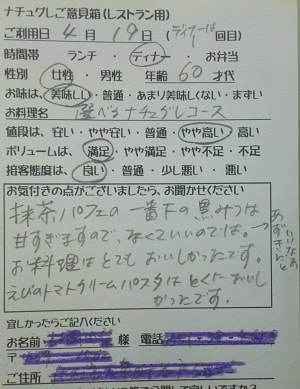 ナチュグレご意見箱(レストラン用)
ご利用日 4月19日(ディナーは 回目)
時間帯 ランチ・ディナー・お弁当
性別 女性・男性 年齢 60才代
お味は、美味しい・普通・あまり美味しくない・まずい
お料理名 選べるナチュグレコース
値段は、安い・やや安い・普通・やや高い・高い
ボリュームは、満足・やや満足・やや不足・不足
接客態度は、良い・普通・少し悪い・悪い
お気付きの点がございましたら、お聞かせください
抹茶パフェの一番下の黒みつは
甘すぎますので、なくていいのでは。→
あずきんと
いいなあ
お料理はとてもおいしかったです。
えびのトマトクリームパスタはとくにおいし
かったです。
宜しかったらご記入ください
お名前 様 電話
〒
ご住所